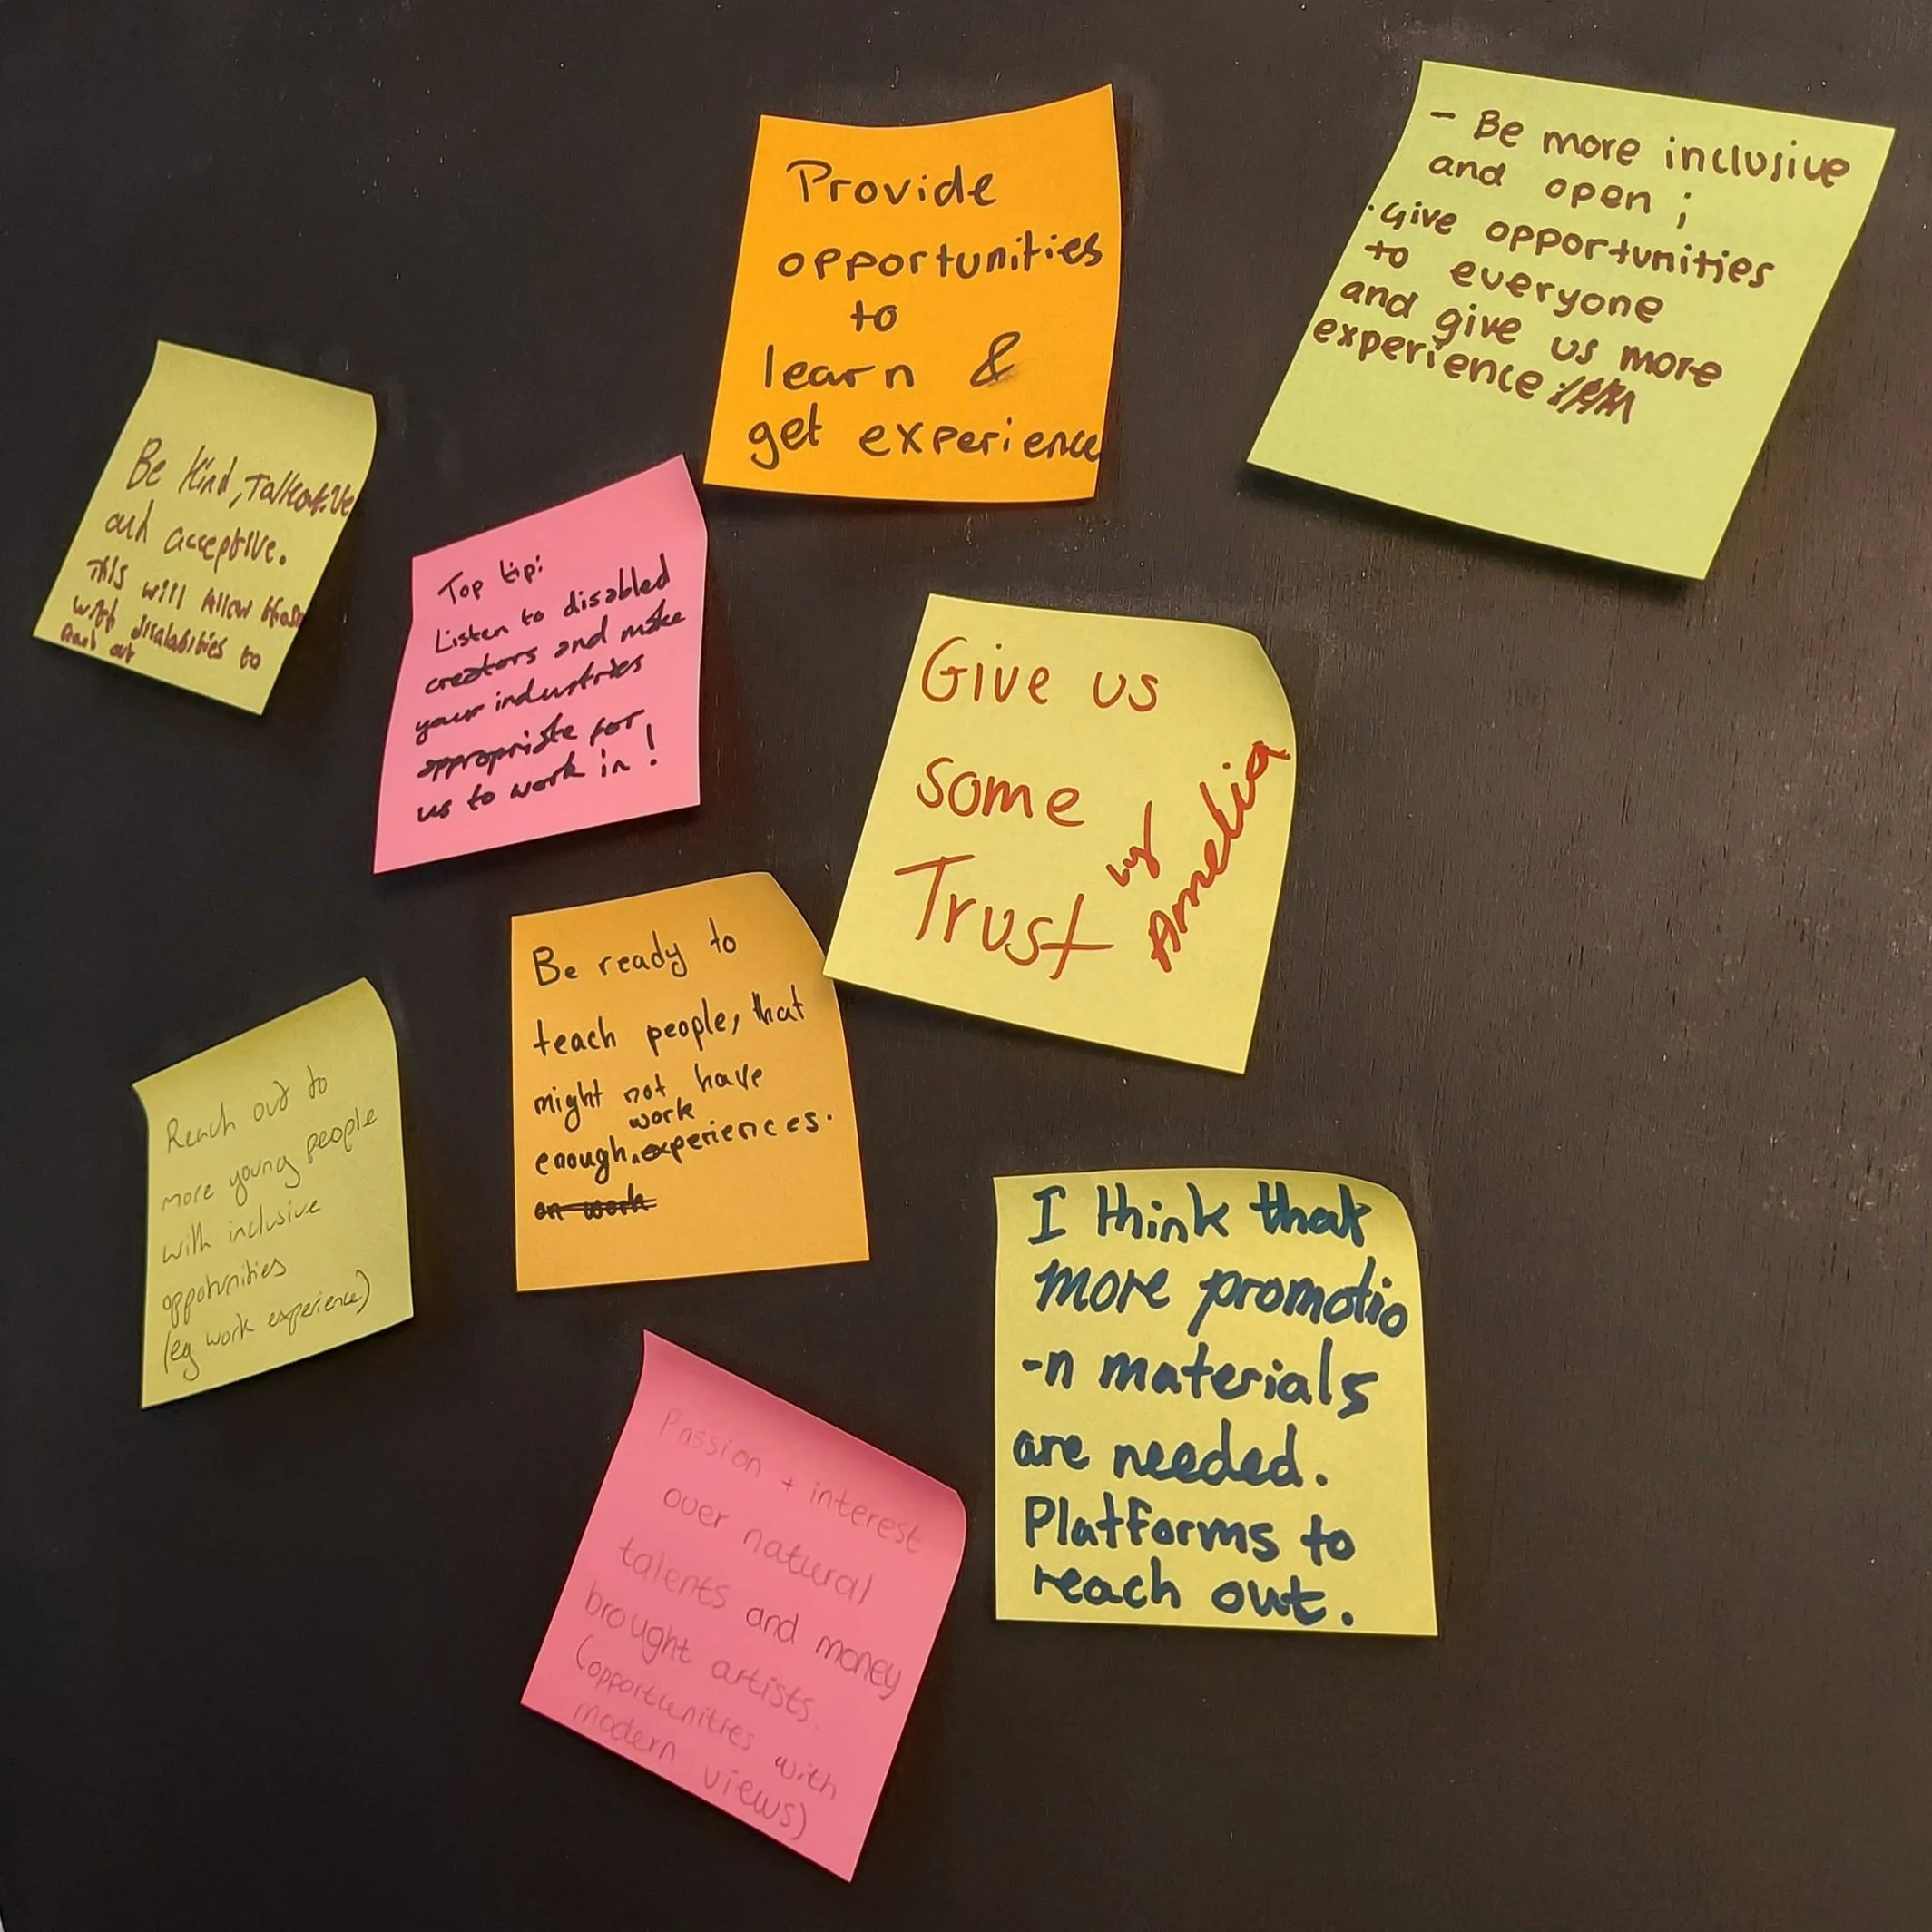 Provide
opportunities
to
learn &
get experience
- Be more inclusive
and open ;
·Give opportunities
to everyone
and give us more
experience
Be kind, Talkative
and acceptive.
This will Allow those
with disabilities to
out
Top tip:
Listen to disabled
creators and make
your industries
appropriate for
us to work in!
Give us
some
Trust
by
Amelia
Be ready to
teach people, that
might not have
work
enough experiences.
on work
Reach out to
more young people
with inclusive
oppotunities
(eg work experience)
I think that
more promotio
-n materials
are needed.
Platforms to
reach out.
Passion + interest
over natural
talents and money
brought artists.
(opportunities with
modern views)